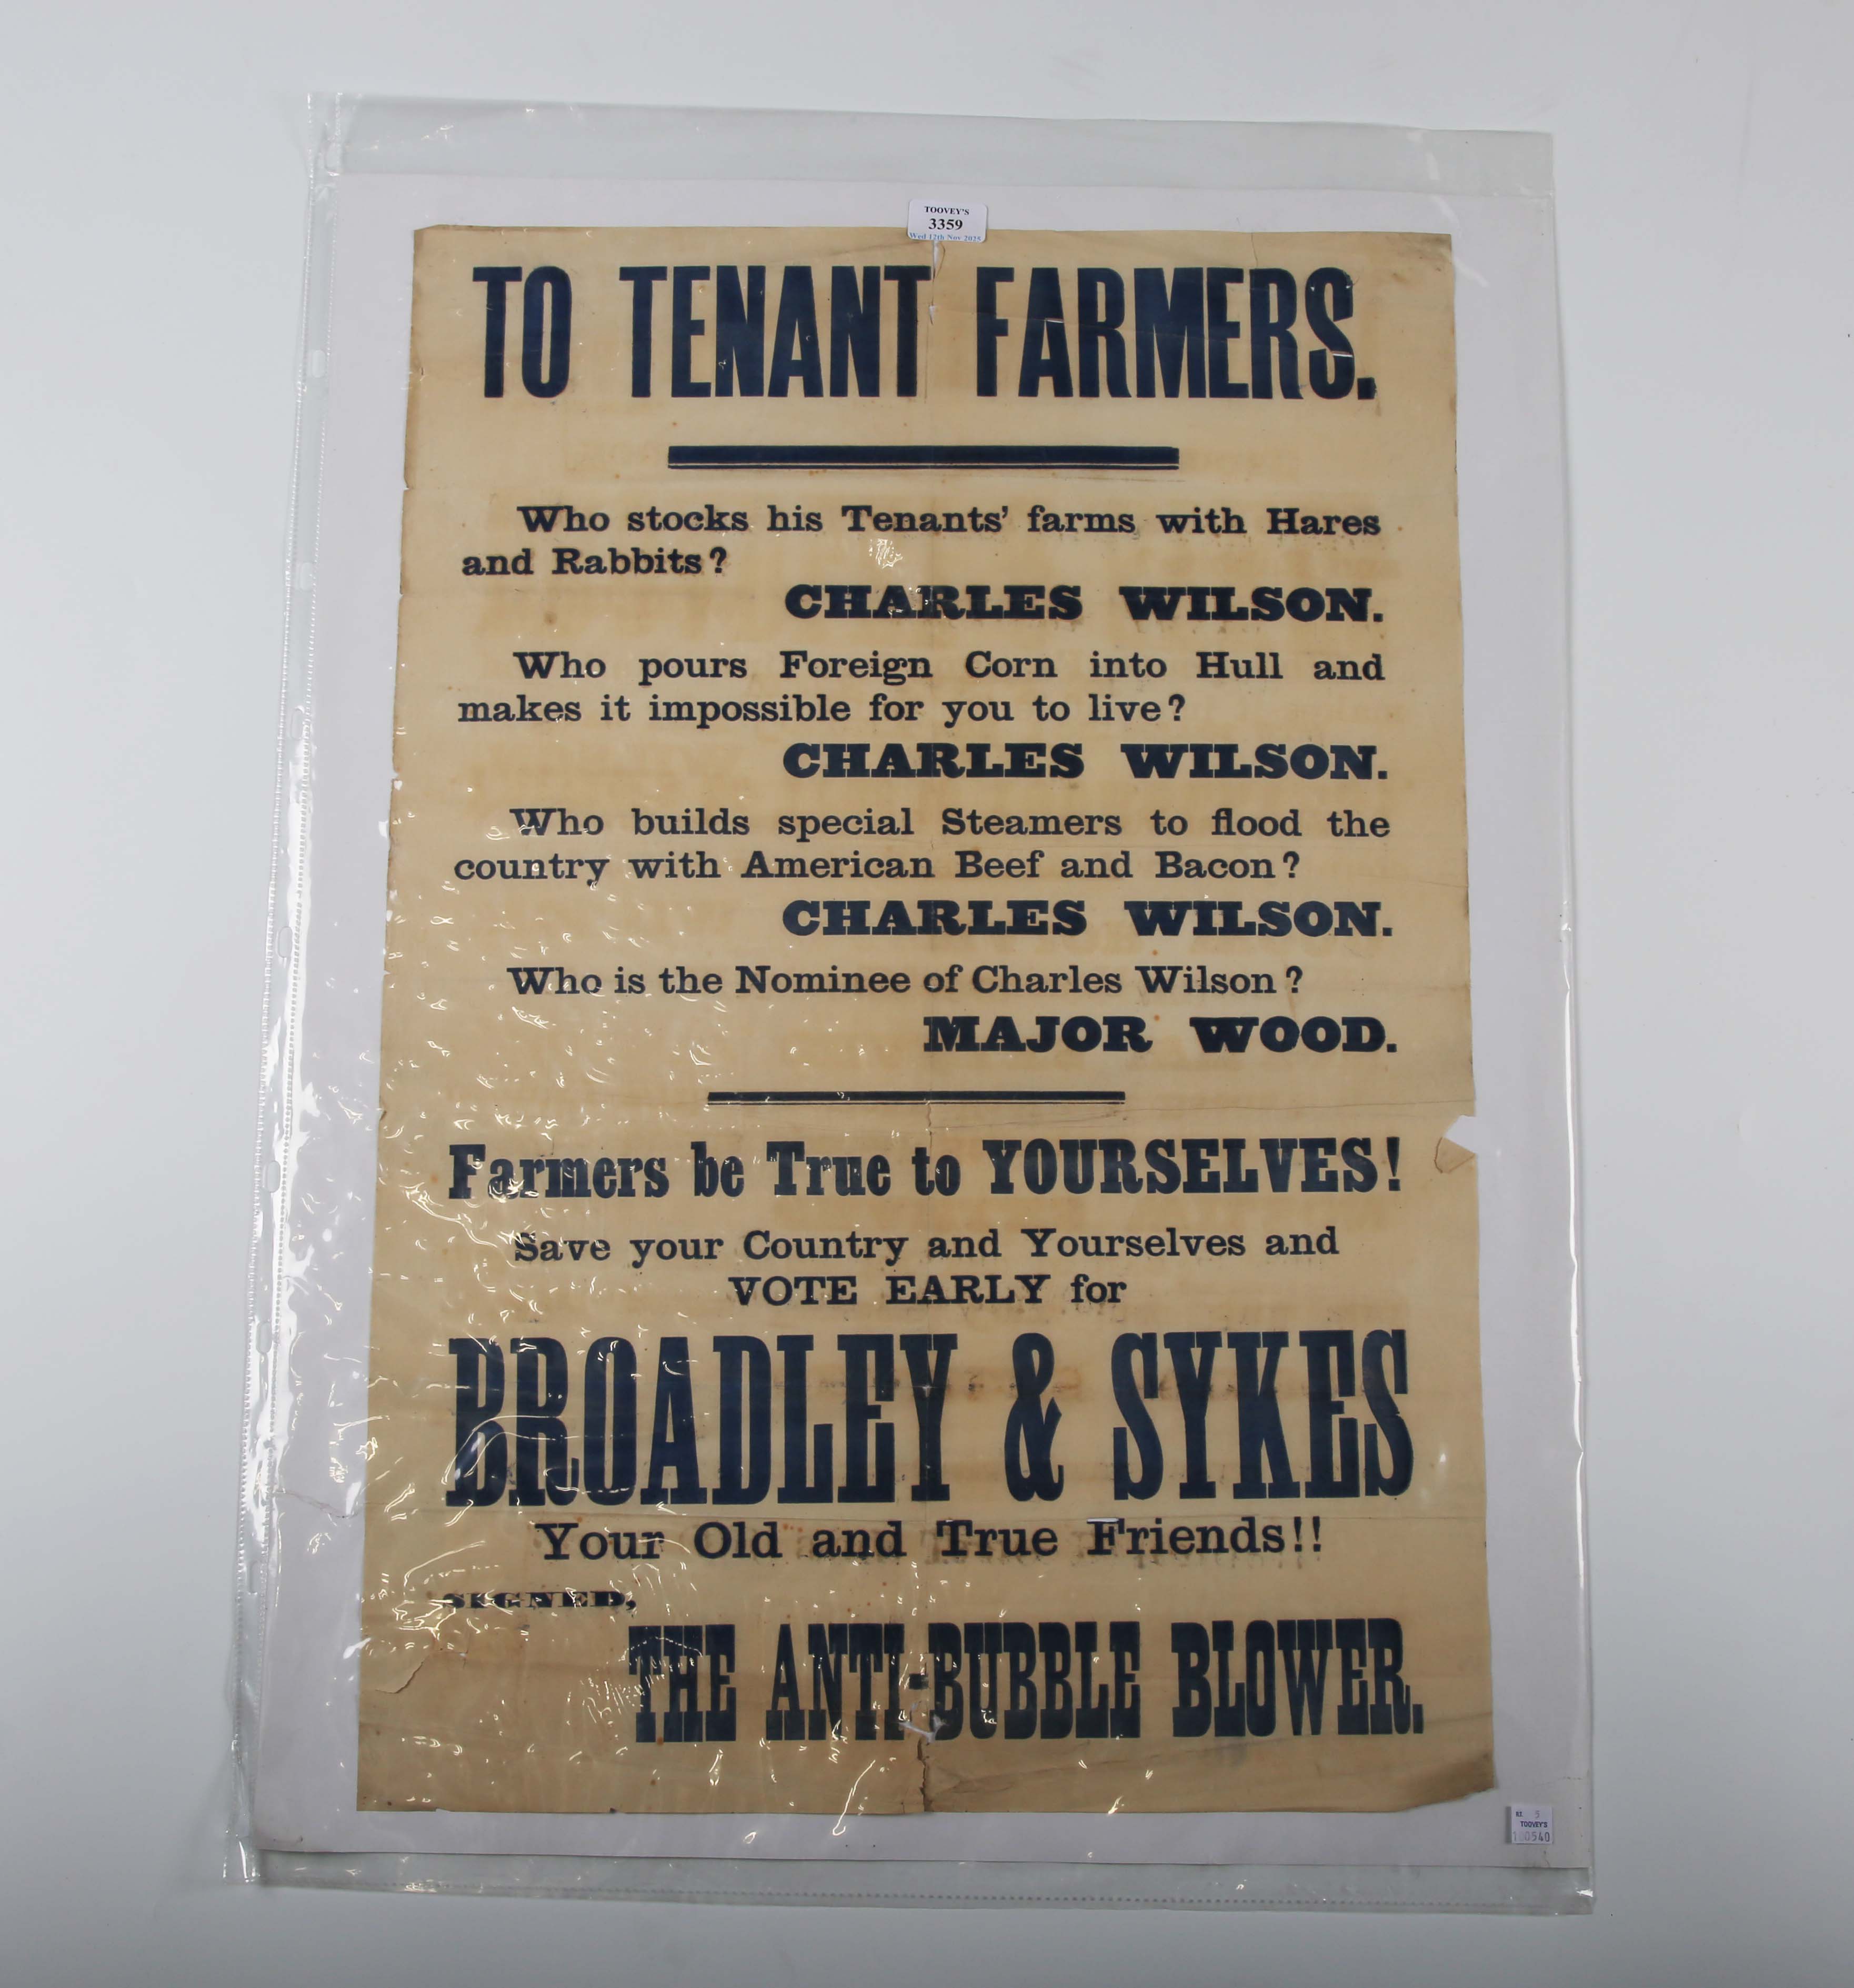 TOOVEY'S
3359
Wed 12th Nov 2025
TO TENANT FARMERS.
Who stocks his Tenants' farms with Hares
and Rabbits?
CHARLES WILSON.
Who pours Foreign Corn into Hull and
makes it impossible for you to live?
CHARLES WILSON.
Who builds special Steamers to flood the
country with American Beef and Bacon?
CHARLES WILSON.
Who is the Nominee of Charles Wilson?
MAJOR WOOD.
Farmers be True to YOURSELVES!
Save your Country and Yourselves and
VOTE EARLY for
BROADLEY & SYKES
Your Old and True Friends!!
SIGNED,
THE ANTI-BUBBLE BLOWER.
3
TOOVEY'S